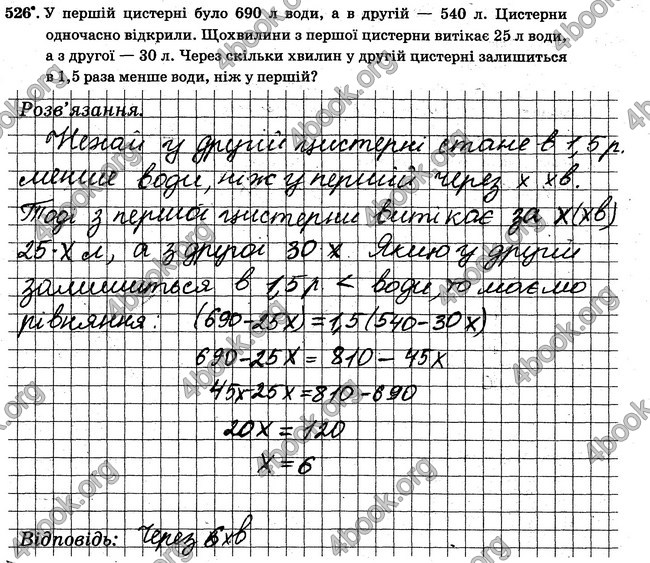 526•. У першій цистерні було 690 л води, а в другій — 540 л. Цистерни
одночасно відкрили. Щохвилини з першої цистерни витікає 25 л води,
а з другої — 30 л. Через скільки хвилин у другій цистерні залишиться
в 1,5 раза менше води, ніж у першій?
Розв'язання.
Нехай у другій цистерні стане в 1,5 р.
менше води, ніж у першій через x хв.
Тоді з першої цистерни витікає за x(хв)
25·x л, а з другої 30 x. Якщо у другій
залишиться в 1,5 р < води, то маємо
рівняння: (690-25x)=1,5(540-30x)
690-25x = 810 - 45x
45x-25x=810-690
20x = 120
x = 6
Відповідь: Через 6 хв
4book.org